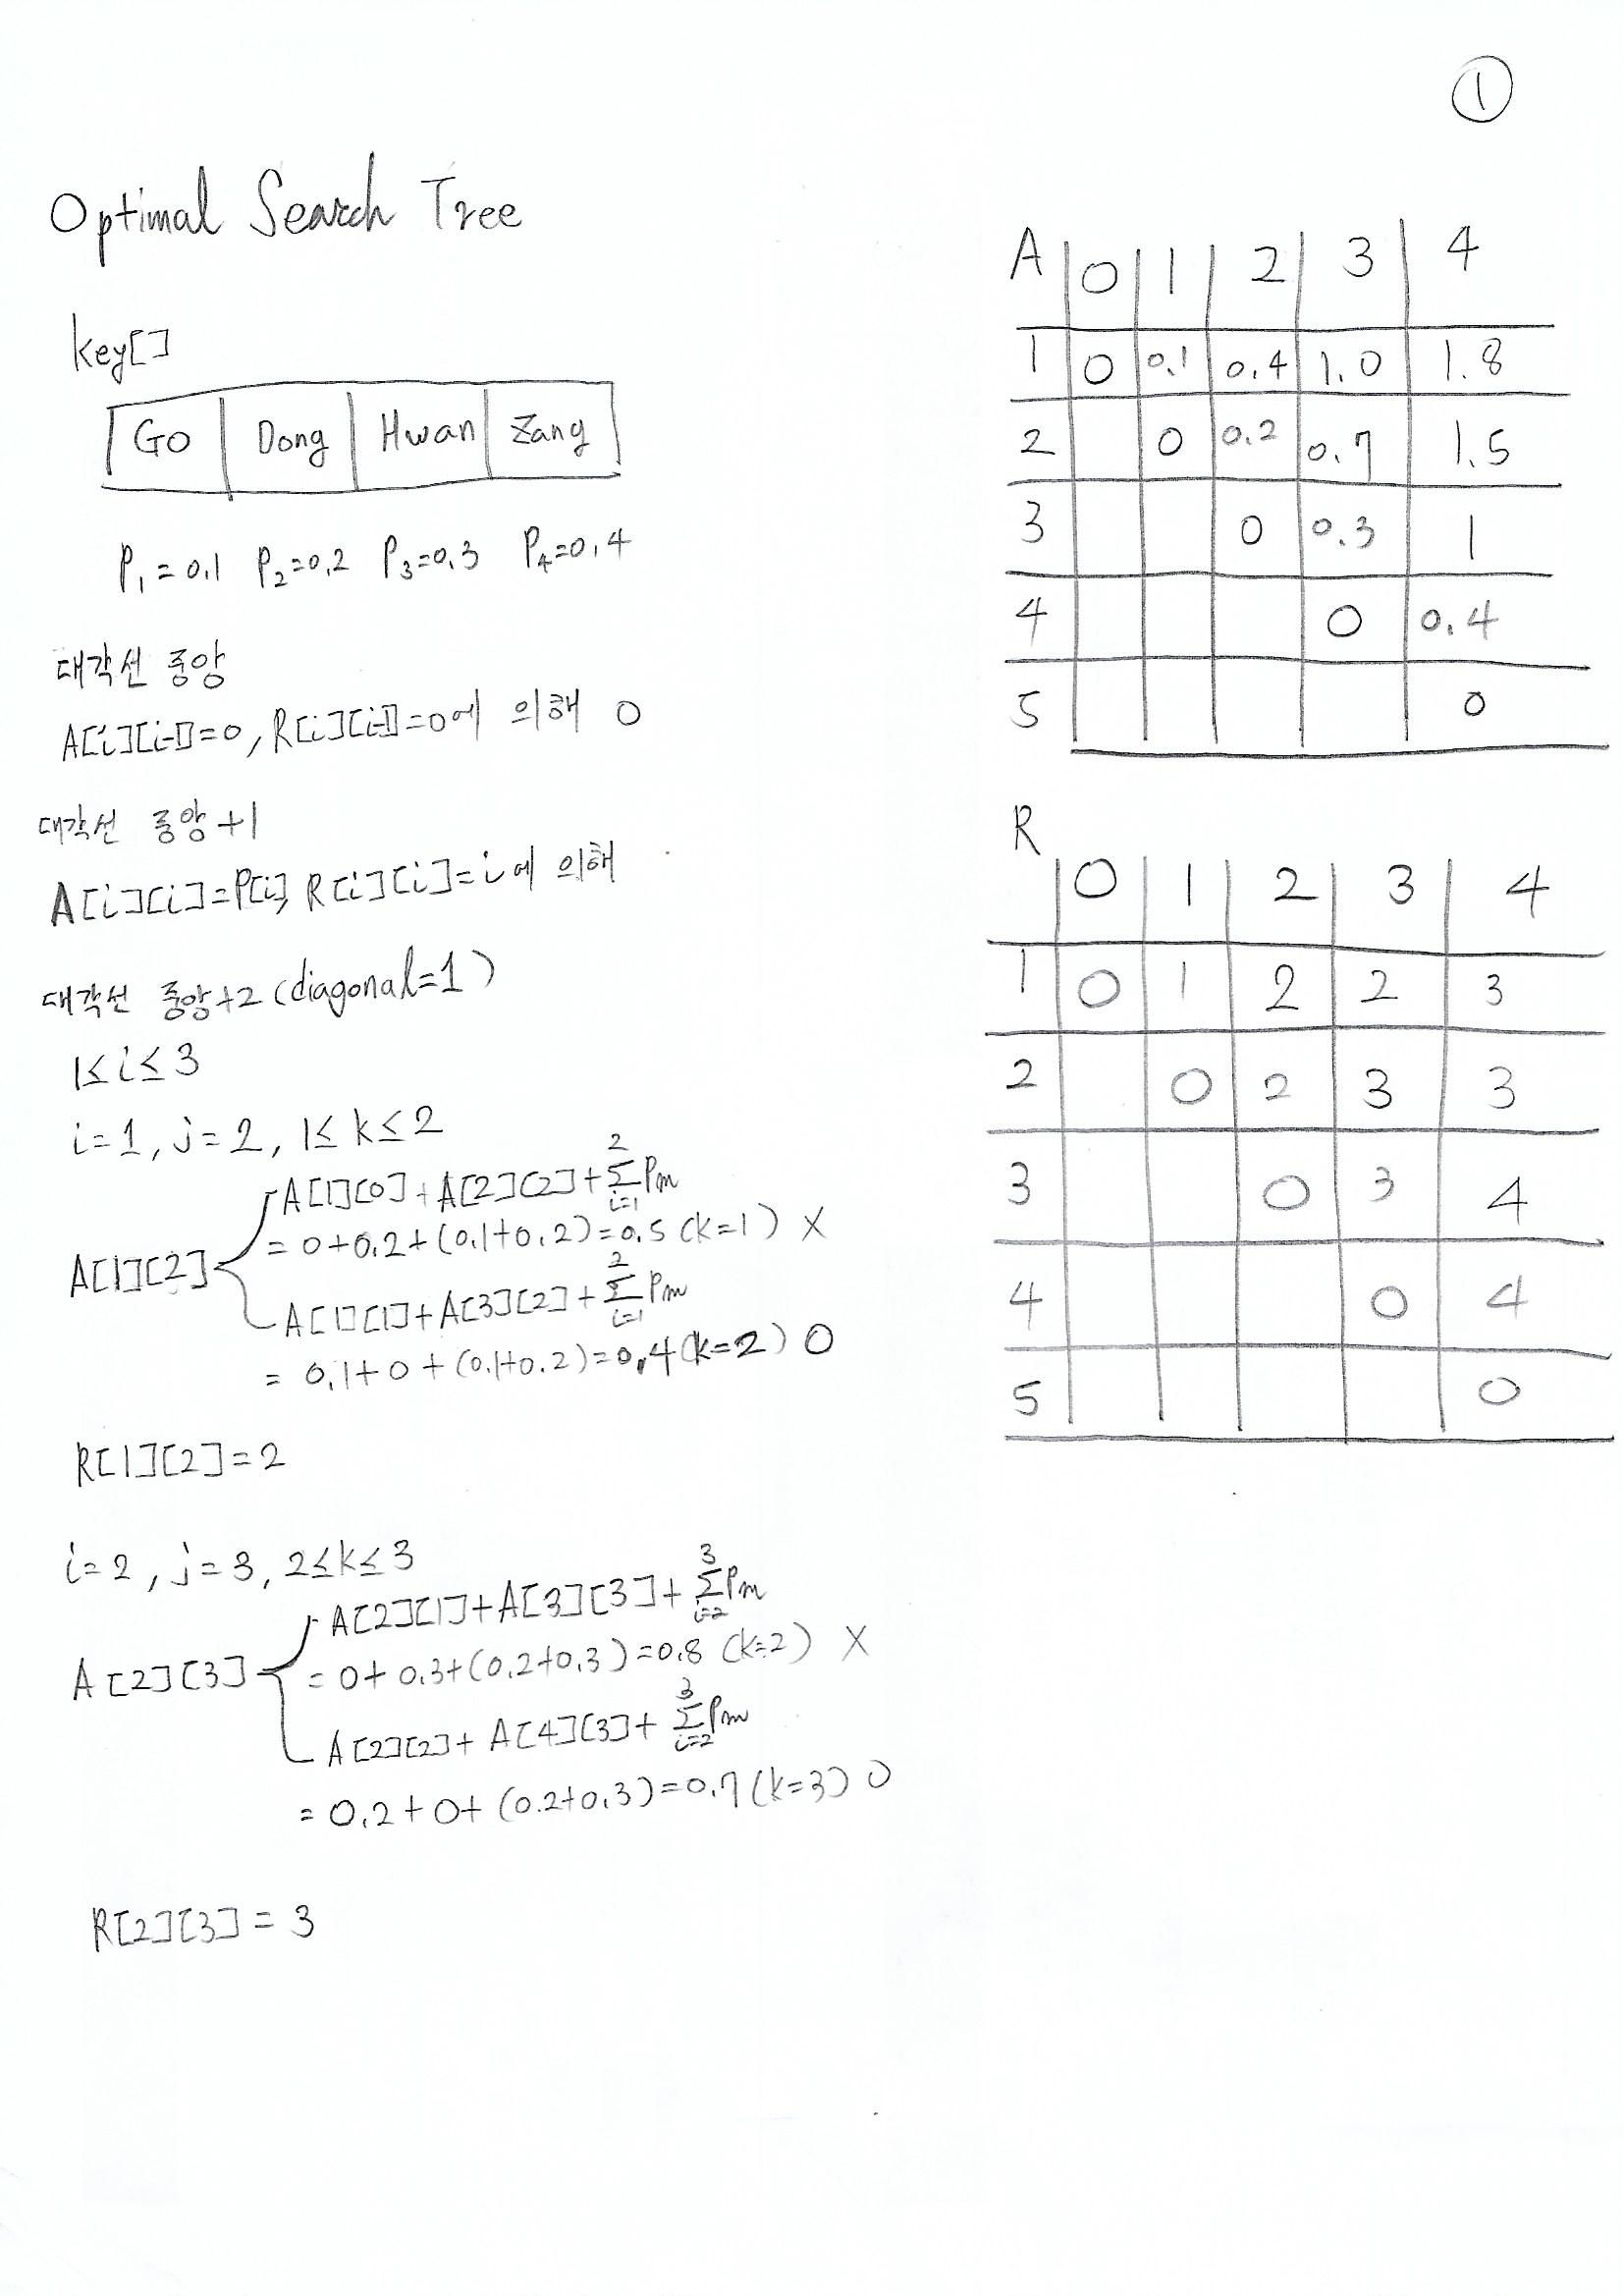 ①
Optimal Search Tree
key[]
Go Dong Hwan Zang
P₁=0.1 P₂=0.2 P₃=0.3 P₄=0.4
대각선 중앙
A[i][i-1]=0, R[i][i-1]=0에 의해 0
대각선 중앙+1
A[i][i]=P[i], R[i][i]=i에 의해
대각선 중앙+2 (diagonal=1)
1≤i≤3
i=1, j=2, 1≤k≤2
A[1][0]+A[2][2]+∑²ᵢ₌₁Pm
= 0+0.2+(0.1+0.2)=0.5 (k=1) X
A[1][2]
A[1][1]+A[3][2]+∑²ᵢ₌₁Pm
= 0.1+0+(0.1+0.2)=0.4 (k=2) O
R[1][2]=2
i=2, j=3, 2≤k≤3
A[2][1]+A[3][3]+∑³ᵢ₌₂Pm
A[2][3] = 0+0.3+(0.2+0.3)=0.8 (k=2) X
A[2][2]+A[4][3]+∑³ᵢ₌₂Pm
= 0.2+0+(0.2+0.3)=0.7 (k=3) O
R[2][3]=3
A 0 1 2 3 4
1 0 0.1 0.4 1.0 1.8
2 0 0.2 0.7 1.5
3 0 0.3 1
4 0 0.4
5 0
R
0 1 2 3 4
1 0 1 2 2 3
2 0 2 3 3
3 0 3 4
4 0 4
5 0